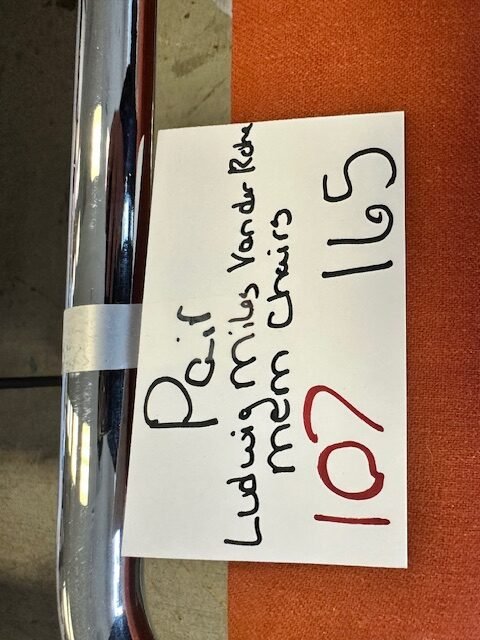 Pair
Ludwig Miles Van der Rohe
mcm Chairs
107 165